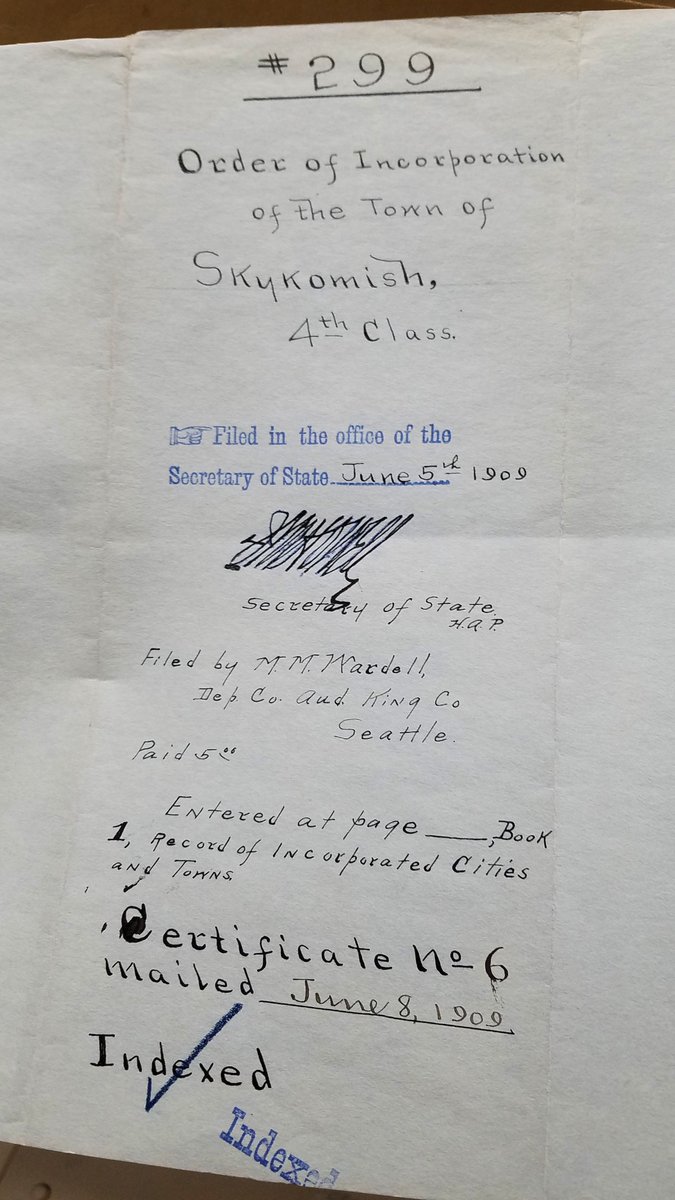 #299
Order of Incorporation
of the Town of
Skykomish,
4th Class.
Filed in the office of the
Secretary of State June 5th 1909
Secretary of State.
H.A.P.
Filed by M.M. Wardell,
Dep. Co. Aud. King Co
Seattle.
Paid 5.00
Entered at page ___, Book
1, Record of Incorporated Cities
and Towns.
Certificate No 6
mailed June 8, 1909.
Indexed
Indexed